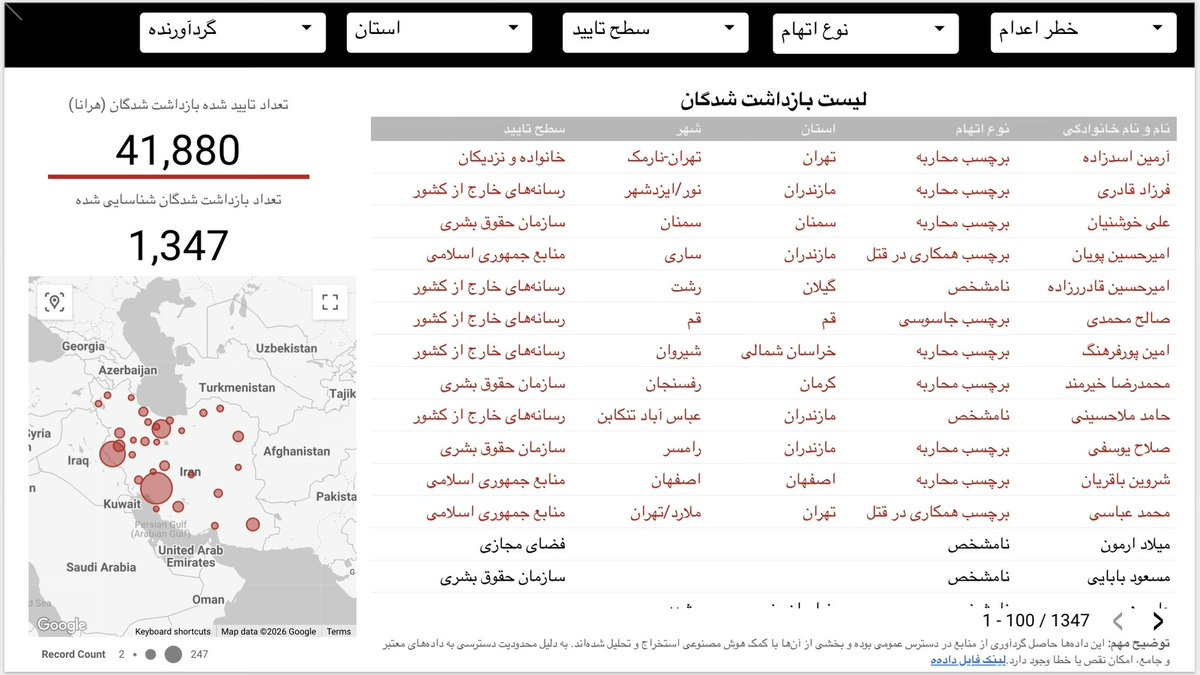 خطر اعدام
نوع اتهام
سطح تایید
استان
گردآورنده
لیست بازداشت شدگان
نام و نام خانوادگی نوع اتهام استان شهر سطح تایید
آرمین اسدزاده برچسب محاربه تهران تهران-نارمک خانواده و نزدیکان
فرزاد قادری برچسب محاربه مازندران نور/ایزدشهر رسانه‌های خارج از کشور
علی خوشنیان برچسب محاربه سمنان سمنان سازمان حقوق بشری
امیرحسین پویان برچسب همکاری در قتل مازندران ساری منابع جمهوری اسلامی
امیرحسین قادرزاده نامشخص گیلان رشت رسانه‌های خارج از کشور
صالح محمدی برچسب جاسوسی قم قم رسانه‌های خارج از کشور
امین پورفرهنگ برچسب محاربه خراسان شمالی شیروان رسانه‌های خارج از کشور
محمدرضا خیرمند برچسب محاربه کرمان رفسنجان سازمان حقوق بشری
حامد ملاحسینی نامشخص مازندران عباس آباد تنکابن رسانه‌های خارج از کشور
صلاح یوسفی برچسب محاربه مازندران رامسر سازمان حقوق بشری
شروین باقریان برچسب محاربه اصفهان اصفهان منابع جمهوری اسلامی
محمد عباسی برچسب همکاری در قتل تهران ملارد/تهران منابع جمهوری اسلامی
میلاد ارمون نامشخص فضای مجازی
مسعود بابایی نامشخص سازمان حقوق بشری
1 - 100 / 1347
توضیح مهم: این داده‌ها حاصل گردآوری از منابع در دسترس عمومی بوده و بخشی از آن‌ها با کمک هوش مصنوعی استخراج و تحلیل شده‌اند. به دلیل محدودیت دسترسی به داده‌های معتبر
و جامع، امکان نقص یا خطا وجود دارد. لینک فایل داده‌ه
تعداد تایید شده بازداشت شدگان (هرانا)
41,880
تعداد بازداشت شدگان شناسایی شده
1,347
Georgia
Uzbekistan
Azerbaijan
Turkmenistan
Tajik
Syria
Iraq
Iran
Afghanistan
Kuwait
Pakista
Persian Gulf
(Arabian Gulf)
United Arab
Emirates
Saudi Arabia
Oman
Google
Keyboard shortcuts Map data ©2026 Google Terms
Record Count 2 247